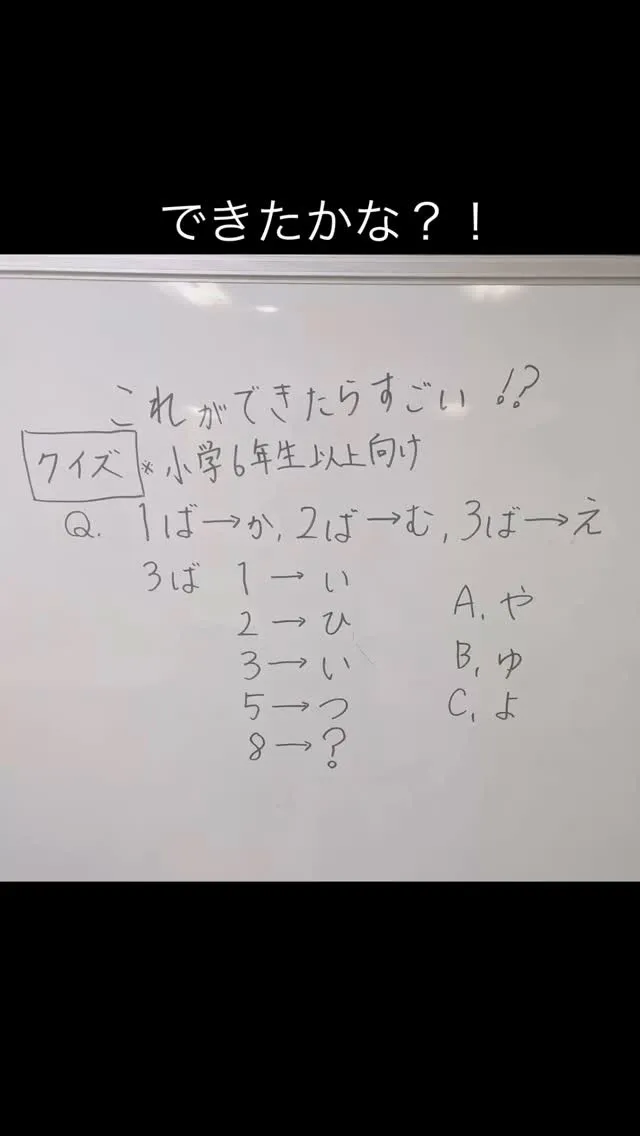 できたかな？！
これができたらすごい!?
クイズ ※小学6年生以上向け
Q. 1ば→か, 2ば→む, 3ば→え
3ば 1→い
2→ひ
3→い
5→つ
8→?
A, や
B, ゆ
C, よ